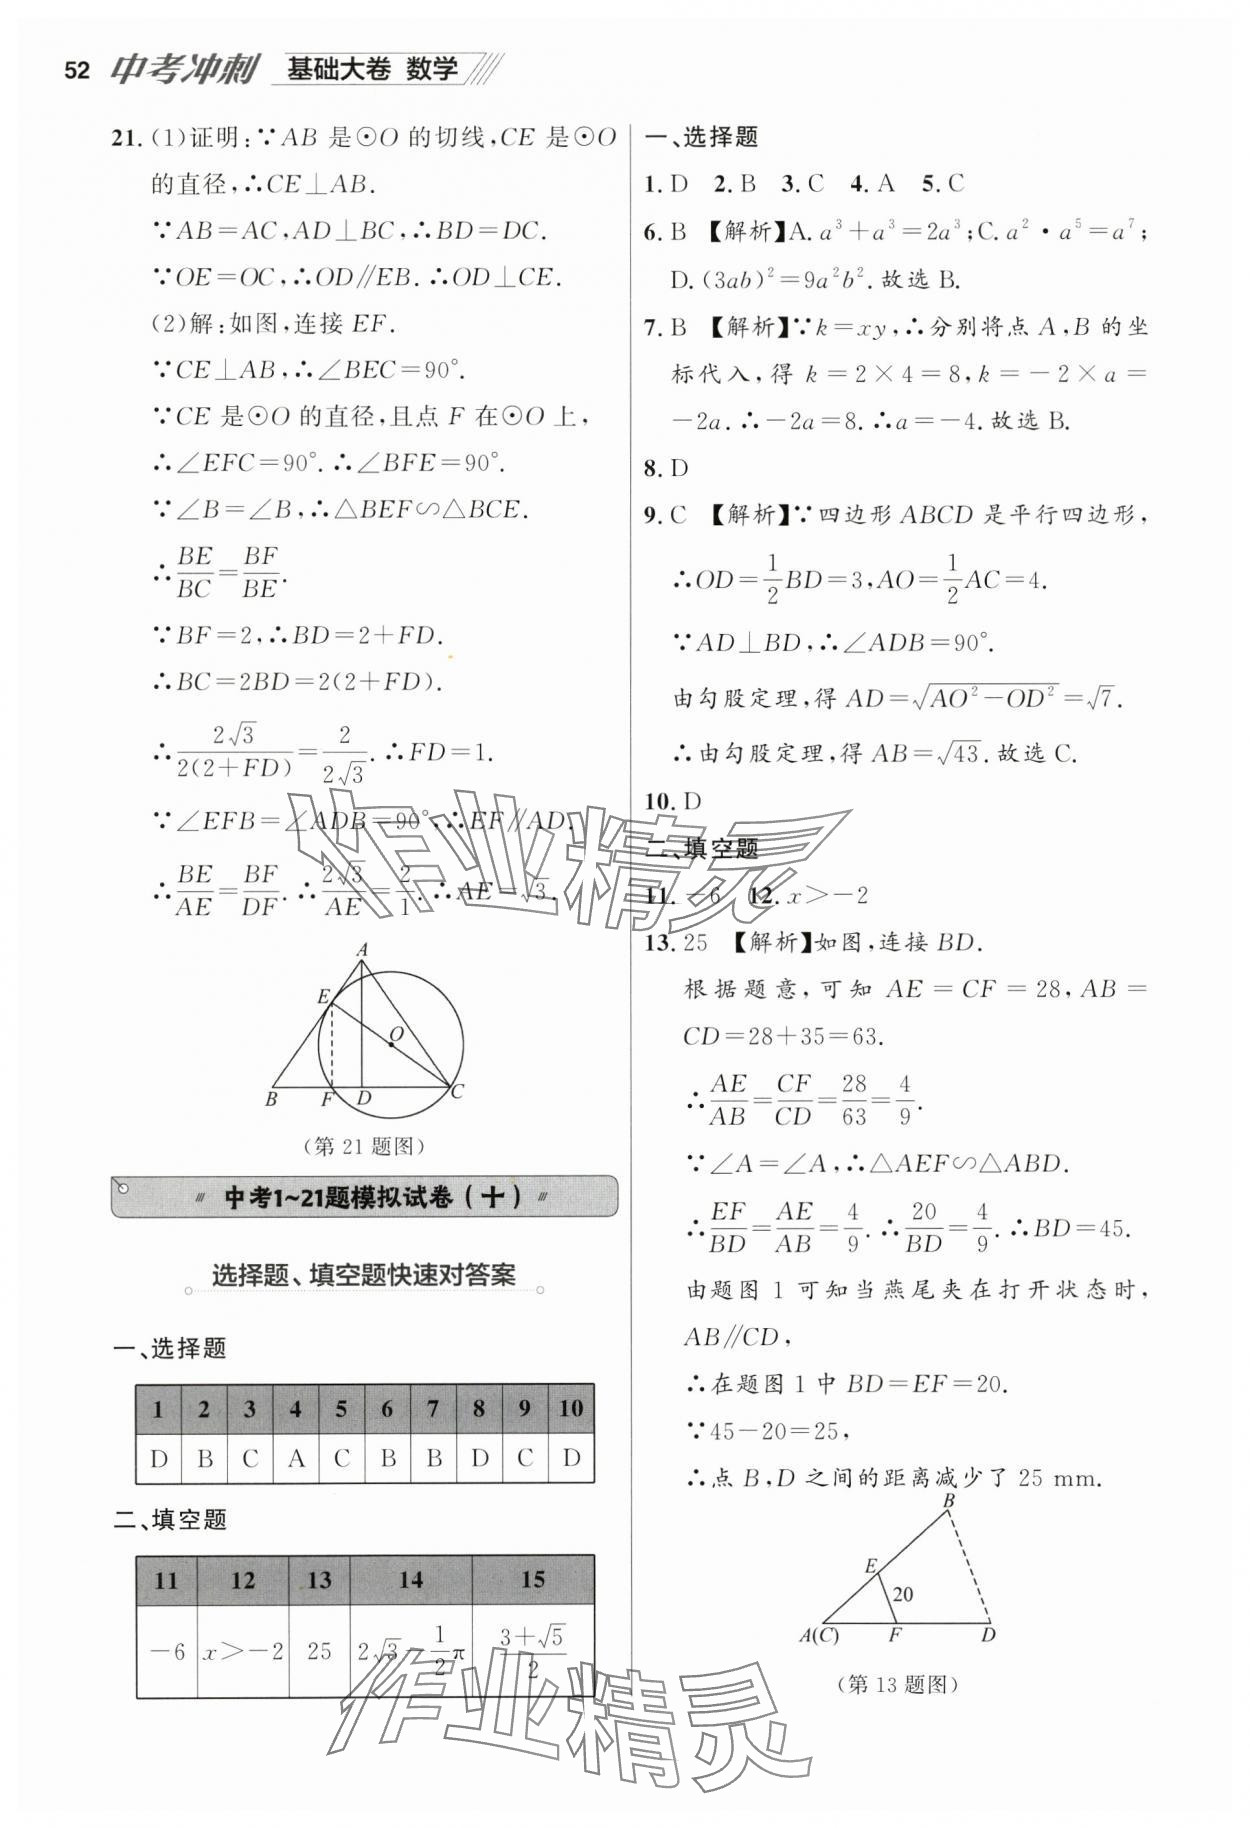 52 中考冲刺 基础大卷 数学
21. (1)证明:∵AB 是⊙O 的切线,CE 是⊙O
的直径,∴CE⊥AB.
∵AB=AC,AD⊥BC,∴BD=DC.
∵OE=OC,∴OD∥EB.∴OD⊥CE.
(2)解:如图,连接 EF.
∵CE⊥AB,∴∠BEC=90°.
∵CE 是⊙O 的直径,且点 F 在⊙O 上,
∴∠EFC=90°.∴∠BFE=90°.
∵∠B=∠B,∴△BEF∽△BCE.
∴BE/BC=BF/BE.
∵BF=2,∴BD=2+FD.
∴BC=2BD=2(2+FD).
∴2√3/2(2+FD)=2/2√3.∴FD=1.
∵∠EFB=∠ADB=90°,∴EF∥AD.
∴BE/AE=BF/DF.∴2√3/AE=2/1.∴AE=√3.
A
E
O
B F D C
(第 21 题图)
中考1~21题模拟试卷(十)
选择题、填空题快速对答案
一、选择题
1 2 3 4 5 6 7 8 9 10
D B C A C B B D C D
二、填空题
11 12 13 14 15
-6 x>-2 25 2√3-1/2π (3+√5)/2
一、选择题
1. D 2. B 3. C 4. A 5. C
6. B 【解析】A. a³+a³=2a³;C. a²·a⁵=a⁷;
D. (3ab)²=9a²b².故选 B.
7. B 【解析】∵k=xy,∴分别将点 A,B 的坐
标代入,得 k=2×4=8,k=-2×a=
-2a.∴-2a=8.∴a=-4.故选 B.
8. D
9. C 【解析】∵四边形 ABCD 是平行四边形,
∴OD=1/2BD=3,AO=1/2AC=4.
∵AD⊥BD,∴∠ADB=90°.
由勾股定理,得 AD=√(AO²-OD²)=√7.
∴由勾股定理,得 AB=√43.故选 C.
10. D
二、填空题
11. -6 12. x>-2
13. 25 【解析】如图,连接 BD.
根据题意,可知 AE=CF=28,AB=
CD=28+35=63.
∴AE/AB=CF/CD=28/63=4/9.
∵∠A=∠A,∴△AEF∽△ABD.
∴EF/BD=AE/AB=4/9.∴20/BD=4/9.∴BD=45.
由题图 1 可知当燕尾夹在打开状态时,
AB∥CD,
∴在题图 1 中 BD=EF=20.
∵45-20=25,
∴点 B,D 之间的距离减少了 25 mm.
B
E
20
A(C) F D
(第 13 题图)
作业精灵
作业精灵